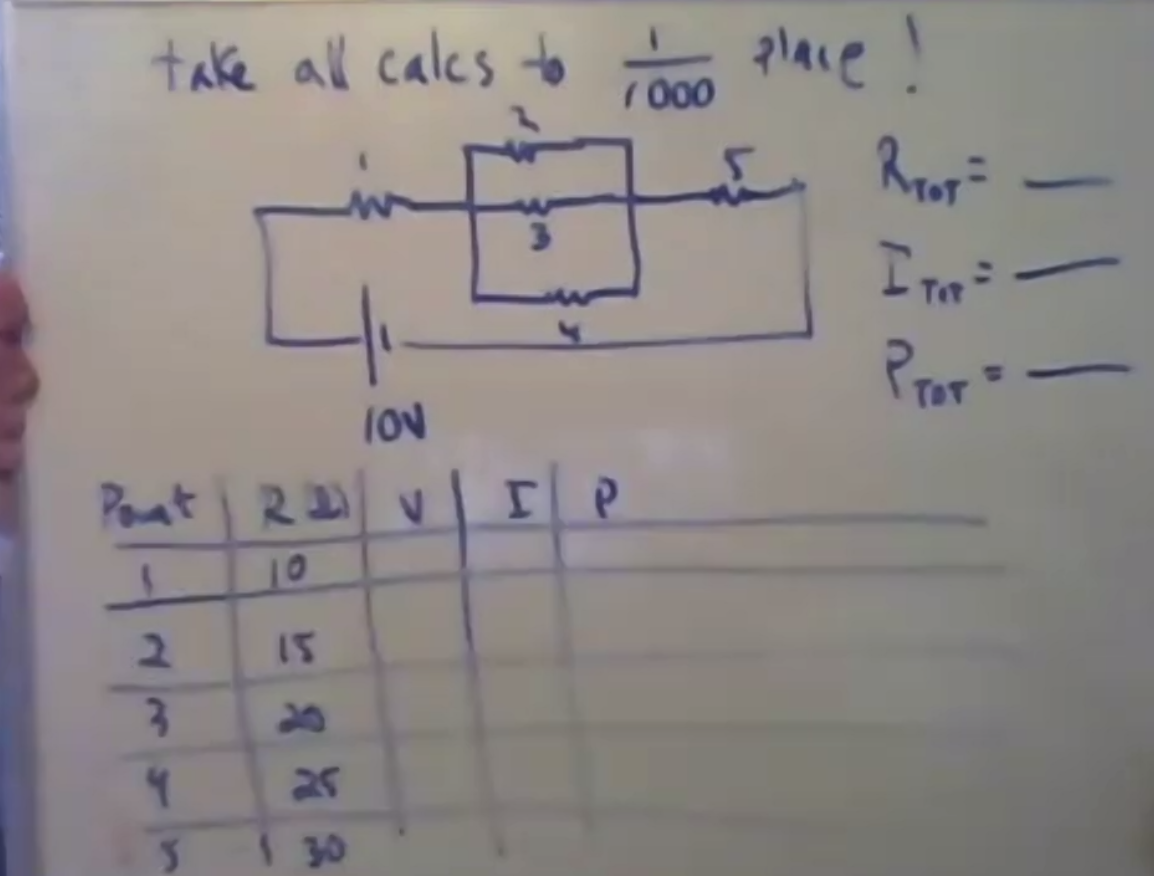 take all calcs to 1/1000 place!
2
1
5
3
4
10V
R TOT = __
I TOT = __
P TOT = __
Point R Ω V I P
1 10
2 15
3 20
4 25
5 30